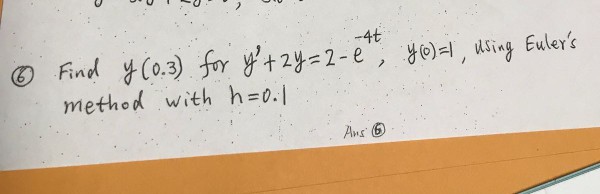 ⑥ Find y(0.3) for y' + 2y = 2 - e^-4t, y(0)=1, using Euler's
method with h=0.1
Ans ⑥